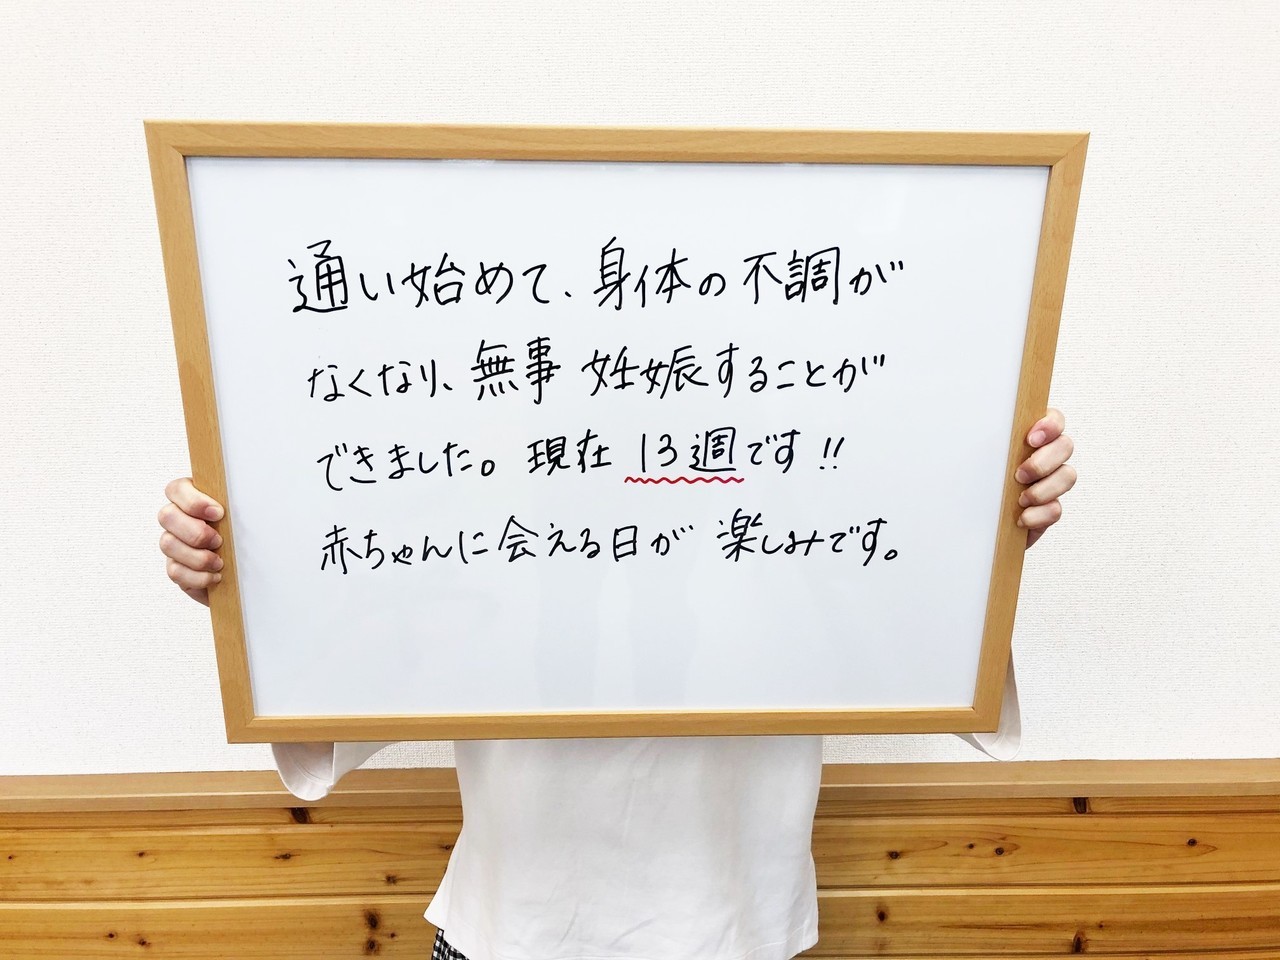 通い始めて、身体の不調が
なくなり、無事 妊娠することが
できました。現在 13週です!!
赤ちゃんに会える日が 楽しみです。